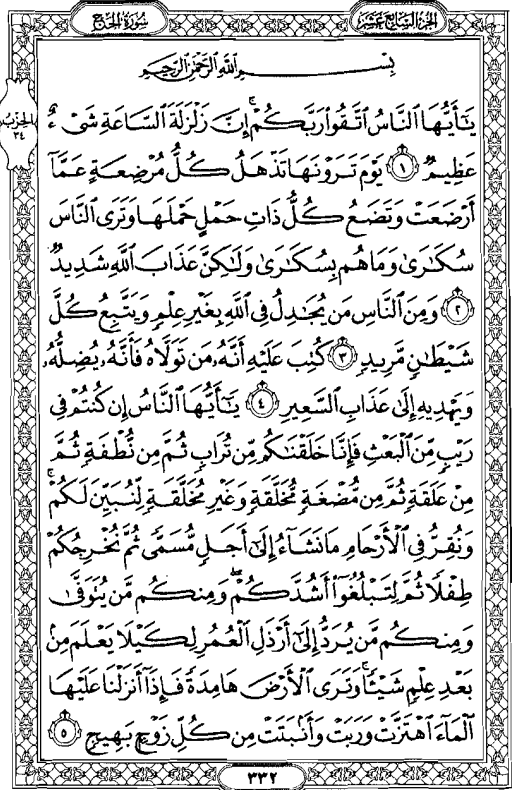 الجزء السابع عشر
سورة الحج
بِسْمِ اللَّهِ الرَّحْمَٰنِ الرَّحِيمِ
الحزب
٣٤
يَٰٓأَيُّهَا ٱلنَّاسُ ٱتَّقُوا۟ رَبَّكُمْ ۚ إِنَّ زَلْزَلَةَ ٱلسَّاعَةِ شَىْءٌ
عَظِيمٌ ١ يَوْمَ تَرَوْنَهَا تَذْهَلُ كُلُّ مُرْضِعَةٍ عَمَّآ
أَرْضَعَتْ وَتَضَعُ كُلُّ ذَاتِ حَمْلٍ حَمْلَهَا وَتَرَى ٱلنَّاسَ
سُكَٰرَىٰ وَمَا هُم بِسُكَٰرَىٰ وَلَٰكِنَّ عَذَابَ ٱللَّهِ شَدِيدٌ
٢ وَمِنَ ٱلنَّاسِ مَن يُجَٰدِلُ فِى ٱللَّهِ بِغَيْرِ عِلْمٍ وَيَتَّبِعُ كُلَّ
شَيْطَٰنٍ مَّرِيدٍ ٣ كُتِبَ عَلَيْهِ أَنَّهُۥ مَن تَوَلَّاهُ فَأَنَّهُۥ يُضِلُّهُۥ
وَيَهْدِيهِ إِلَىٰ عَذَابِ ٱلسَّعِيرِ ٤ يَٰٓأَيُّهَا ٱلنَّاسُ إِن كُنتُمْ فِى
رَيْبٍ مِّنَ ٱلْبَعْثِ فَإِنَّا خَلَقْنَٰكُم مِّن تُرَابٍ ثُمَّ مِن نُّطْفَةٍ ثُمَّ
مِنْ عَلَقَةٍ ثُمَّ مِن مُّضْغَةٍ مُّخَلَّقَةٍ وَغَيْرِ مُخَلَّقَةٍ لِّنُبَيِّنَ لَكُمْ ۚ
وَنُقِرُّ فِى ٱلْأَرْحَامِ مَا نَشَآءُ إِلَىٰٓ أَجَلٍ مُّسَمًّى ثُمَّ نُخْرِجُكُمْ
طِفْلًا ثُمَّ لِتَبْلُغُوٓا۟ أَشُدَّكُمْ ۖ وَمِنكُم مَّن يُتَوَفَّىٰ
وَمِنكُم مَّن يُرَدُّ إِلَىٰٓ أَرْذَلِ ٱلْعُمُرِ لِكَيْلَا يَعْلَمَ مِنۢ
بَعْدِ عِلْمٍ شَيْـًٔا ۚ وَتَرَى ٱلْأَرْضَ هَامِدَةً فَإِذَآ أَنزَلْنَا عَلَيْهَا
ٱلْمَآءَ ٱهْتَزَّتْ وَرَبَتْ وَأَنۢبَتَتْ مِن كُلِّ زَوْجٍۭ بَهِيجٍ ٥
٣٣٢